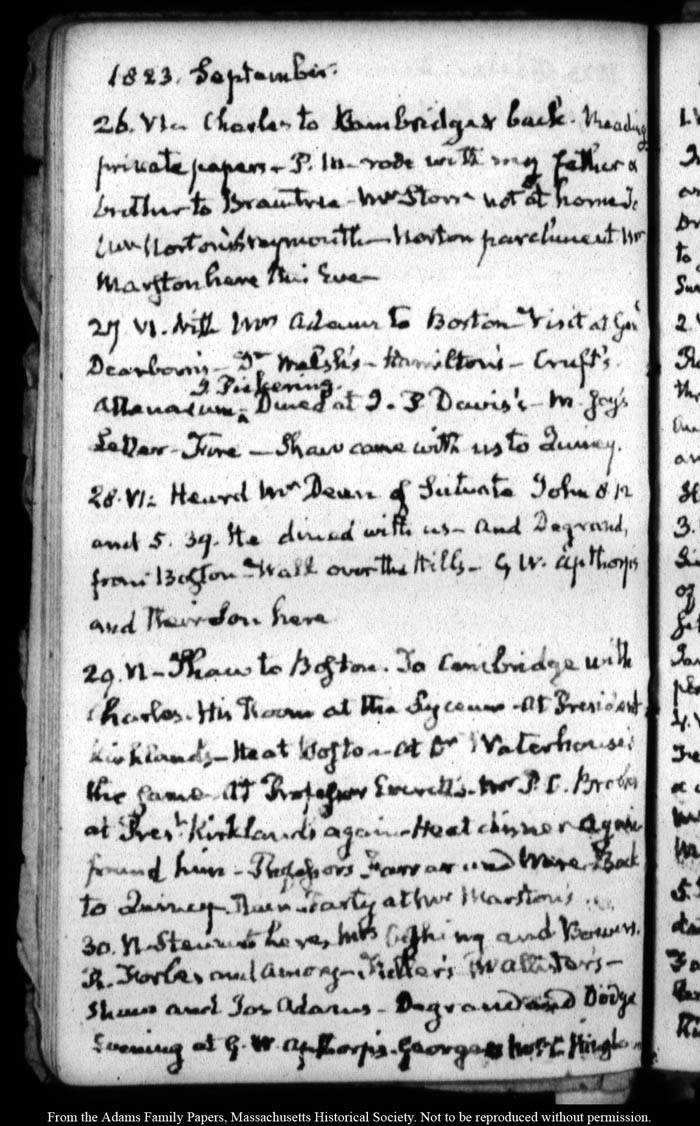 1823. September.
26. VI. Charles to Cambridge & back. Reading
private papers. P. M. rode with my father &
brother to Braintree. Mr Storrs not at home. To
Norton's Weymouth. Norton parchment Mr
Marston here this Eve
27 VI. With Wm Adams to Boston. Visit at Genl
Dearborn's. Dr Welsh's. Hamilton's. Cruft's.
T. Pickering.
Athenaeum. Dined at I. P. Davis's. M.
Letter. Fire. Shaw came with us to Quincy.
28. VI: Heard Mr Deane of Scituate John 8 12
and 5. 39. He dined with us. and Degrand,
from Boston. Walk over the Hills. G W. Apthorp's
and their son here
29. VI. Shaw to Boston. To Cambridge with
Charles. His Room at the Lyceum. At President
Kirkland's. He at Boston. At Dr Waterhouse's
the same. At Professor Everett's. Mr P. C. Brooks
at Prest Kirkland's again. He at dinner again
found him. Professors Farrar and Ware. Back
to Quincy. Rain. Party at Marston's
30. here, Mrs Cushing and
and Emory.
Shaw and Jos Adams. Degrand and Dodge
Evening at G. W. Apthorp's. George
From the Adams Family Papers, Massachusetts Historical Society. Not to be reproduced without permission.